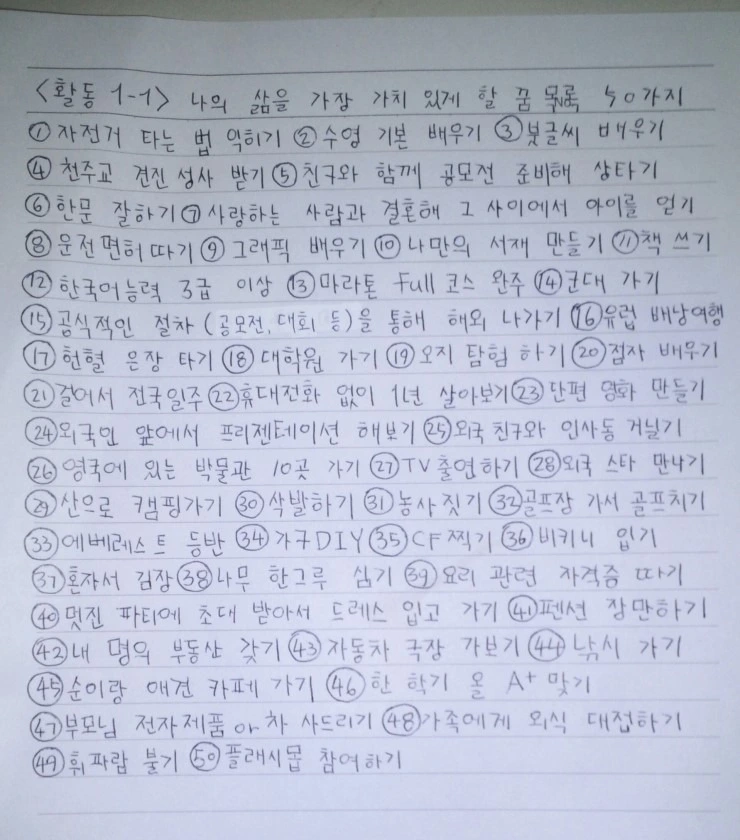 <활동 1-1> 나의 삶을 가장 가치 있게 할 꿈 목록 50가지
① 자전거 타는 법 익히기 ② 수영 기본 배우기 ③ 붓글씨 배우기
④ 천주교 견진성사 받기 ⑤ 친구와 함께 공모전 준비해 상타기
⑥ 한문 잘하기 ⑦ 사랑하는 사람과 결혼해 그 사이에서 아이를 얻기
⑧ 운전면허따기 ⑨ 그래픽 배우기 ⑩ 나만의 서재 만들기 ⑪ 책 쓰기
⑫ 한국어능력 3급 이상 ⑬ 마라톤 Full 코스 완주 ⑭ 군대 가기
⑮ 공식적인 절차 (공모전, 대회 등)을 통해 해외 나가기 ⑯ 유럽 배낭여행
⑰ 헌혈 은장 타기 ⑱ 대학원 가기 ⑲ 오지 탐험 하기 ⑳ 점자 배우기
㉑ 걸어서 전국일주 ㉒ 휴대전화 없이 1년 살아보기 ㉓ 단편 영화 만들기
㉔ 외국인 앞에서 프리젠테이션 해보기 ㉕ 외국 친구와 인사동 거닐기
㉖ 영국에 있는 박물관 10곳 가기 ㉗ TV출연하기 ㉘ 외국 스타 만나기
㉙ 산으로 캠핑가기 ㉚ 삭발하기 ㉛ 농사짓기 ㉜ 골프장 가서 골프치기
㉝ 에베레스트 등반 ㉞ 가구DIY ㉟ CF찍기 ㊱ 비키니 입기
㊲ 혼자서 김장 ㊳ 나무 한그루 심기 ㊴ 요리 관련 자격증 따기
㊵ 멋진 파티에 초대 받아서 드레스 입고 가기 ㊶ 펜션 장만하기
㊷ 내 명의 부동산 갖기 ㊸ 자동차 극장 가보기 ㊹ 낚시 가기
㊺ 순이랑 애견 카페 가기 ㊻ 한 학기 올 A+ 맞기
㊼ 부모님 전자제품 or 차 사드리기 ㊽ 가족에게 외식 대접하기
㊾ 휘파람 불기 ㊿ 플래시몹 참여하기